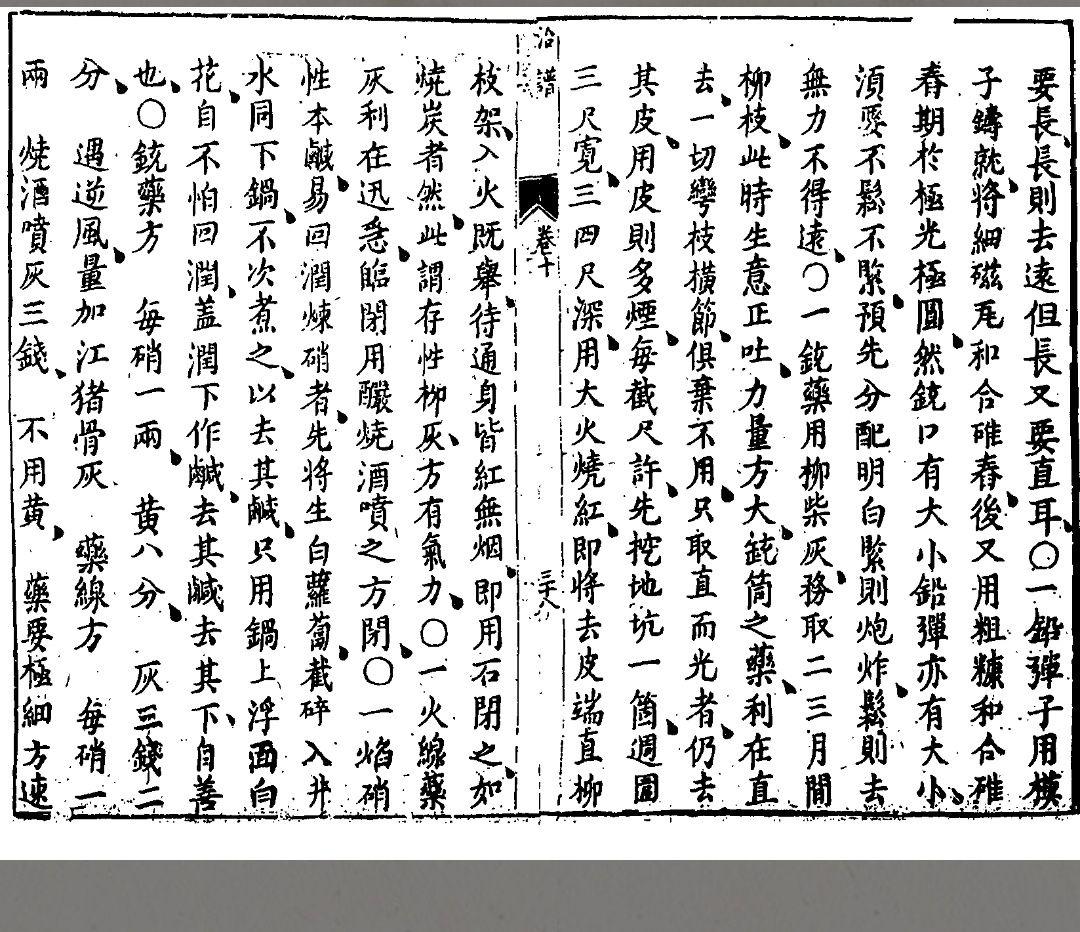 要長長則去遠但長又要直耳〇一鉛彈子用模
子鑄就將細磁瓦和合碓舂後又用粗糠和合碓
舂期於極光極圓然銃口有大小鉛彈亦有大小
須要不鬆不緊預先分配明白緊則炮炸鬆則去
無力不得遠〇一銃藥用柳柴灰務取二三月間
柳枝此時生意正吐力量方大銃筒之藥利在直
去一切彎枝橫節俱棄不用只取直而光者仍去
其皮用皮則多煙每截尺許先挖地坑一箇週圍
三尺寬三四尺深用大火燒紅即將去皮端直柳
治譜
卷十
三十八
枝架入火既舉待通身皆紅無烟即用石閉之如
燒炭者然此謂存性柳灰方有氣力〇一火線藥
灰利在迅急臨閉用釅燒酒噴之方閉〇一焰硝
性本鹹易回潤煉硝者先將生白蘿蔔截碎入井
水同下鍋不次煮之以去其鹹只用鍋上浮面白
花自不怕回潤蓋潤下作鹹去其鹹去其下自善
也〇銃藥方 每硝一兩 黃八分 灰三錢二
分 遇逆風量加江猪骨灰 藥線方 每硝一
兩 燒酒噴灰三錢 不用黃 藥要極細方速